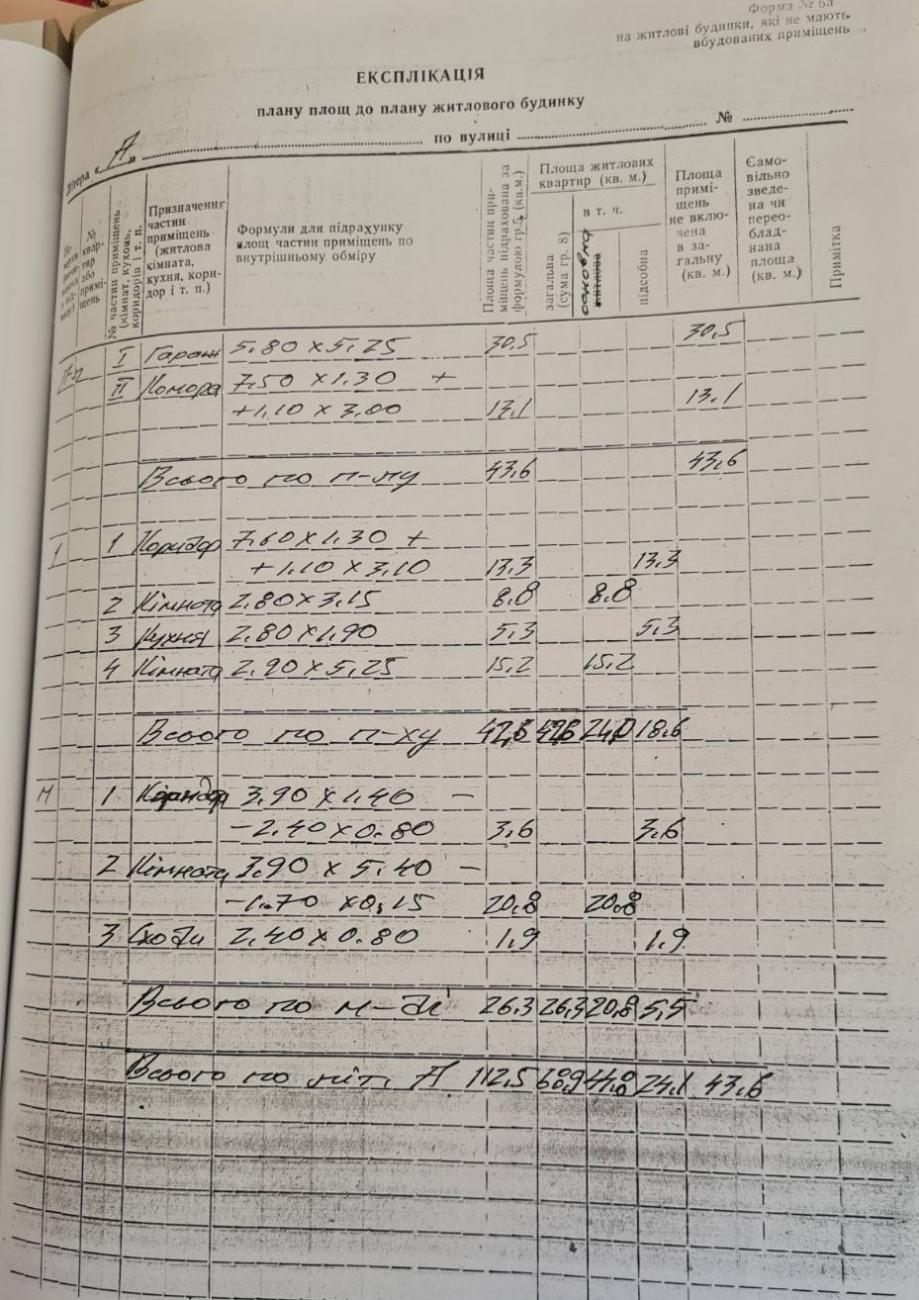 Форма № 6а
на житлові будинки, які не мають
вбудованих приміщень
ЕКСПЛІКАЦІЯ
плану площ до плану житлового будинку
Літера « А » по вулиці №
№ квар- тир або примі- щень
№ частин приміщень (кімнат, кухонь, коридорів і т. п.
Призначення частин приміщень (житлова кімната, кухня, кори- дор і т. п.)
Формули для підрахунку площ частин приміщень по внутрішньому обміру
Площа частин при- міщень підрахована за формулою гр.5 (кв.м.)
Площа житлових квартир (кв. м.)
загальна (сума гр. 8)
в т. ч.
основна
житлова
підсобна
Площа примі- щень не вклю- чена в за- гальну (кв. м.)
Само- вільно зведе- на чи перео- блад- нана площа (кв. м.)
Примітка
I Гараж 5.80 x 5.25 30,5 30,5
II Комора 7,50 x 1.30 +
+1,10 x 3,00 13,1 13,1
Всього по п-лу 43,6 43,6
1 1 Коридор 7,60 x 1,30 +
+1,10 x 3,10 13,3 13,3
2 Кімната 2,80 x 3,15 8,8 8,8
3 Кухня 2,80 x 1,90 5,3 5,3
4 Кімната 2,90 x 5,25 15,2 15,2
Всього по п-ху 42,6 42,6 24,0 18,6
М 1 Коридор 3,90 x 1,40 –
-2,40 x 0.80 3,6 3,6
2 Кімната 3,90 x 5,40 –
-1.70 x 0,15 20,8 20,8
3 Сходи 2,40 x 0.80 1,9 1,9
Всього по м-ді 26,3 26,3 20,8 5,5
Всього по літ. А 112,5 68,9 44,8 24,1 43,6